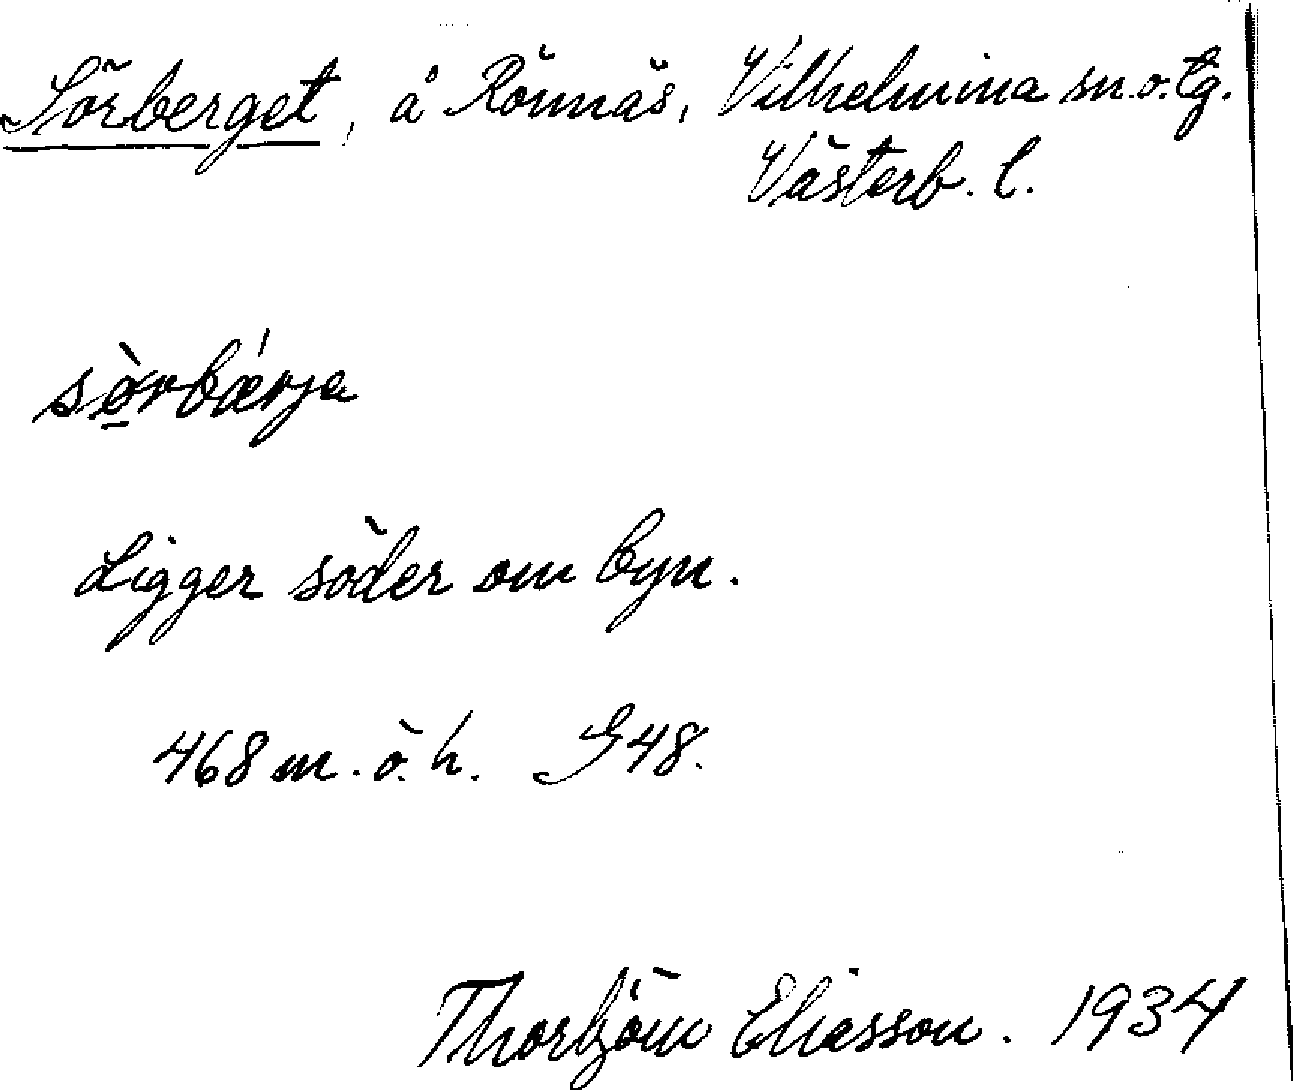 Sörberget, å Rönnäs, Vilhelmina sn. o. tg.
Västerb. l.
sò̱rbǽrja
Ligger söder om byn.
468 m. ö. h. G48.
Thorbjörn Eliasson. 1934